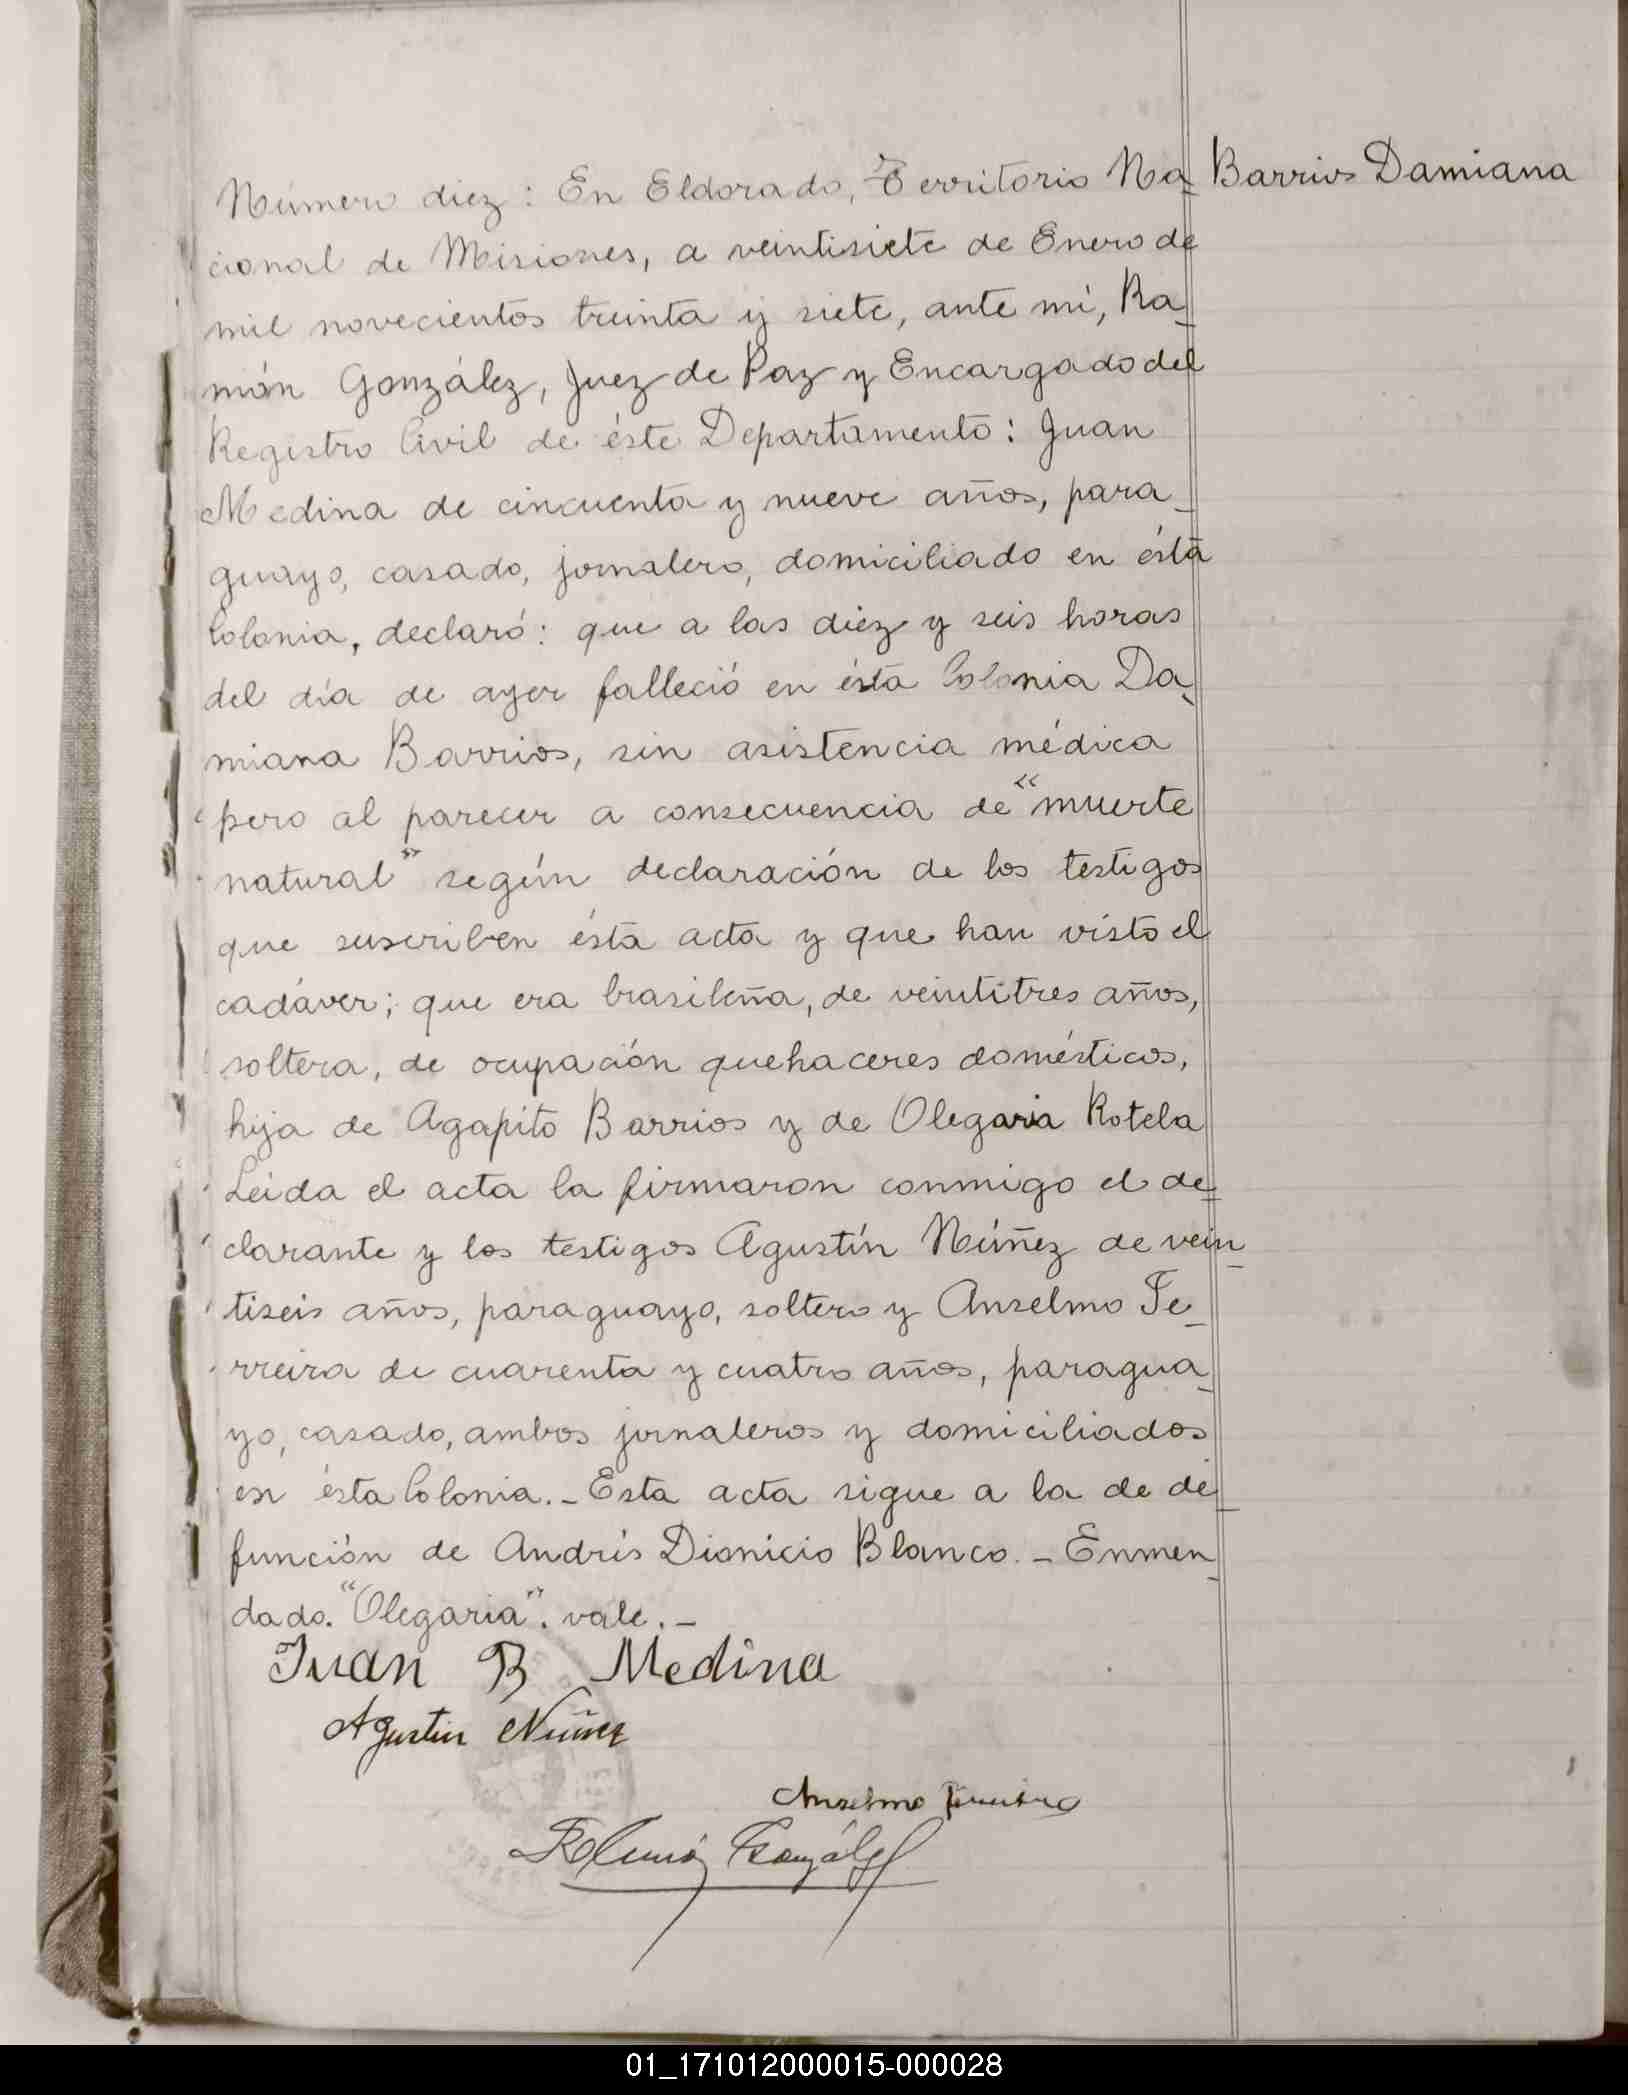 Número diez: En Eldorado, Territorio Na_
Barrios Damiana
cional de Misiones, a veintisiete de Enero de
mil novecientos treinta y siete, ante mí, Ra_
món González, Juez de Paz y Encargado del
Registro Civil de éste Departamento: Juan
Medina de cincuenta y nueve años, para_
guayo, casado, jornalero, domiciliado en ésta
Colonia, declaró: que a las diez y seis horas
del día de ayer falleció en ésta Colonia Da_
miana Barrios, sin asistencia médica
pero al parecer a consecuencia de "muerte
natural" según declaración de los testigos
que suscriben ésta acta y que han visto el
cadáver; que era brasileña, de veintitres años,
soltera, de ocupación quehaceres domésticos,
hija de Agapito Barrios y de Olegaria Rotela
Leida el acta la firmaron conmigo el de_
clarante y los testigos Agustín Núñez de vein_
tiseis años, paraguayo, soltero y Anselmo Fe_
rreira de cuarenta y cuatro años, paragua_
yo, casado, ambos jornaleros y domiciliados
en ésta Colonia._ Esta acta sigue a la de de_
función de Andrés Dionicio Blanco._ Enmen_
dado. "Olegaria". vale._
Juan B Medina
Agustin Nuñez
Anselmo Ferreira
Ramón González
01_171012000015-000028